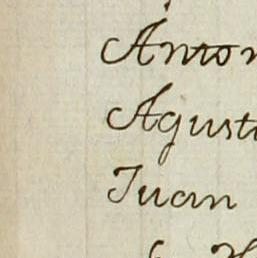 Anton
Agust
Juan